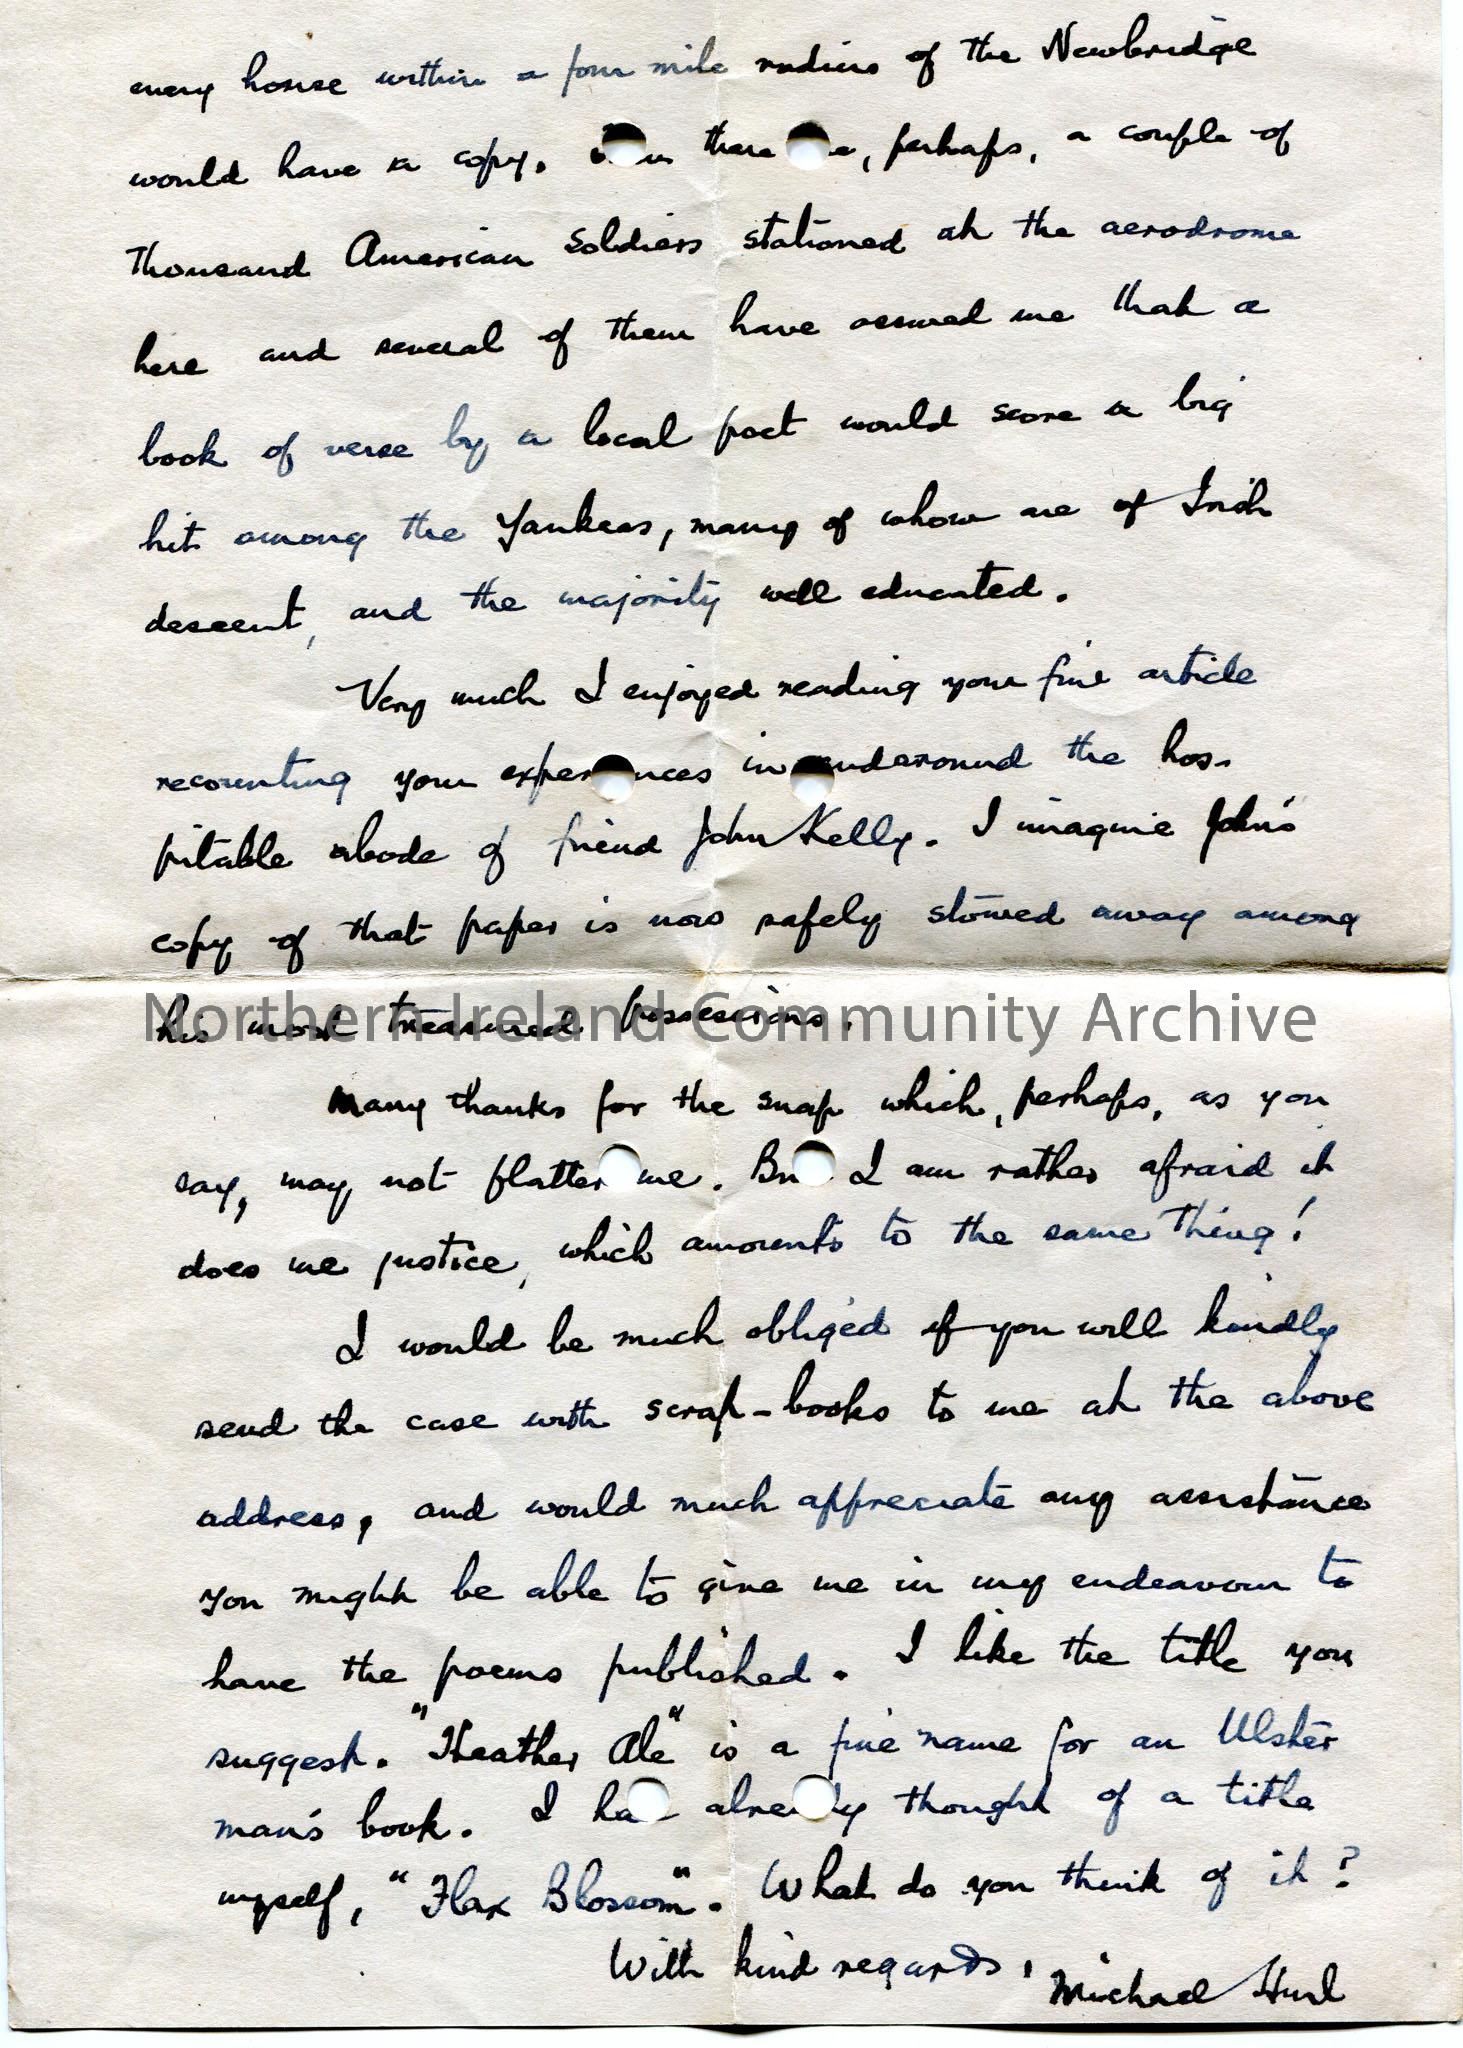 every house within a four mile radius of the Newbridge
would have a copy. there, perhaps, a couple of
thousand American soldiers stationed at the aerodrome
here and several of them have assured me that a
book of verse by a local poet would score a big
hit among the Yankees, many of whom are of Irish
descent, and the majority well educated.
Very much I enjoyed reading your fine article
recounting your exper nces in and around the hos-
pitable abode of friend John Kelly. I imagine John's
copy of that paper is now safely stowed away among
his most treasured possessions.
Northern Ireland Community Archive
Many thanks for the snap which, perhaps, as you
say, may not flatter me. Bu I am rather afraid it
does me justice, which amounts to the same thing!
I would be much obliged if you will kindly
send the case with scrap-books to me at the above
address, and would much appreciate any assistance
you might be able to give me in my endeavour to
have the poems published. I like the title you
suggest. "Heather Ale" is a fine name for an Ulster
man's book. I ha alre y thought of a title
myself, "Flax Blossom". What do you think of it?
With kind regards, Michael Hurl